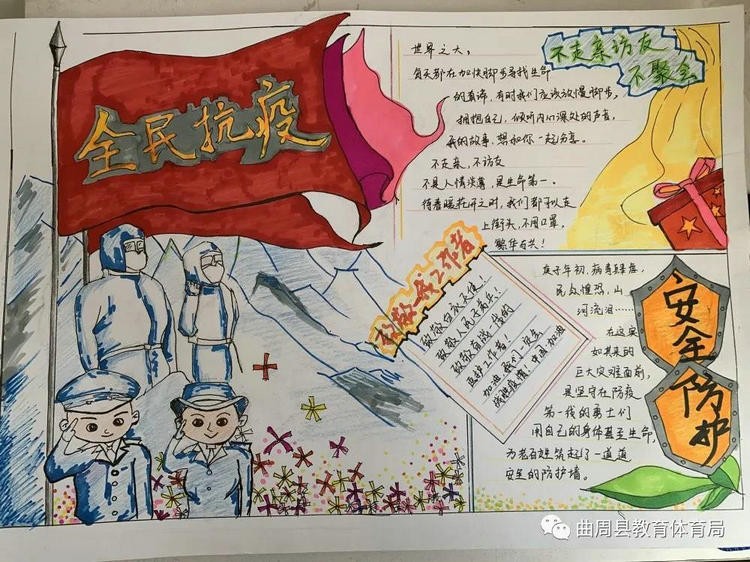 全民抗疫
不走亲访友
不聚会
世界之大，
每天都在加快脚步寻找生命
的真谛，有时我们应该放慢脚步，
拥抱自己，倾听内心深处的声音，
我的故事，想和你一起分享。
不走亲，不访友
不是人情淡薄，是生命第一。
待春暖花开之时，我们都可以走
上街头，不用口罩，
繁华与共！
致敬一线工作者
致敬白衣天使！
致敬人民子弟兵！
致敬奋战一线的
医护工作者！
加油，我们一定会
战胜疫情！中国加油
庚子年初，病毒肆虐，
民众惶恐，山
河流泪……
在这突
如其来的
巨大灾难面前，
是坚守在防疫
第一线的勇士们
用自己的身体甚至生命，
为老百姓筑起了一道道
安全的防护墙。
安全
防护
曲周县教育体育局